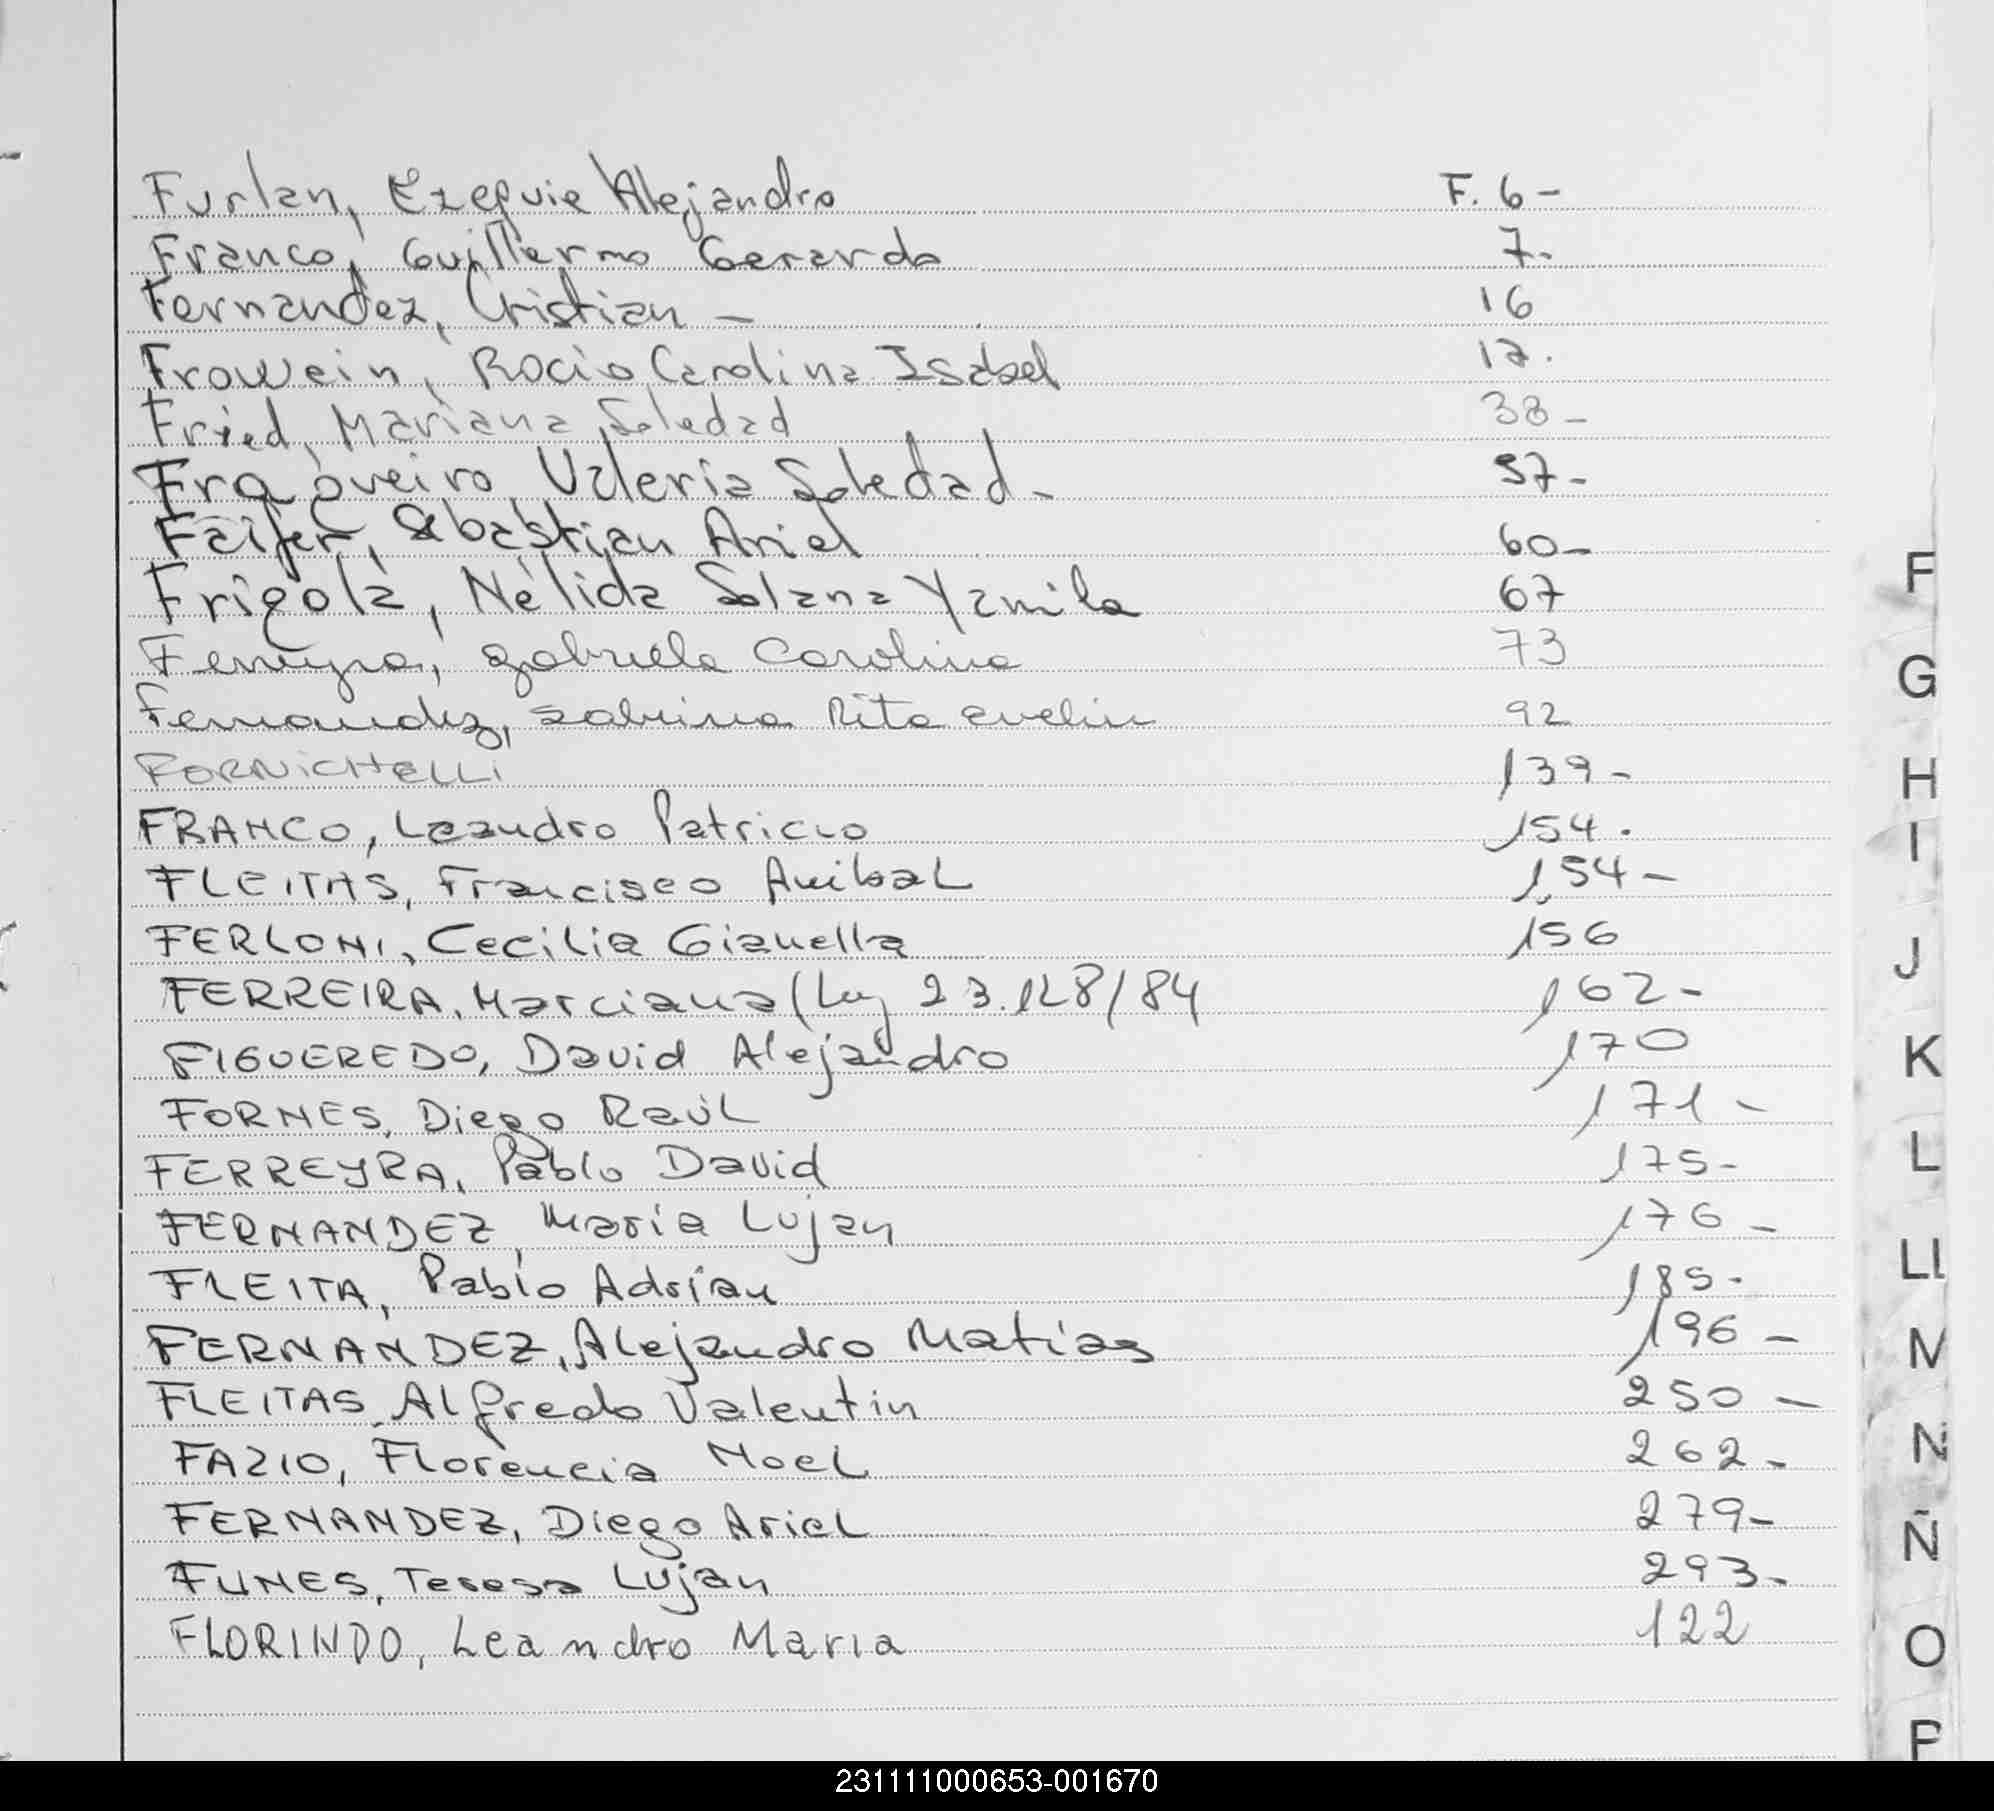 Furlan, Ezequie Alejandro F. 6 -
Franco, Guillermo Gerardo 7.
Fernandez, Cristian - 16
Frowein, Rocio Carolina Isabel 17.
Fried, Mariana Soledad 38 -
Valeria Soledad - 57 -
Faifer, Sebastian Ariel 60 -
Frigolá, Nélida Solana Yamila 67
Ferreyra, Gabriela Carolina 73
Fernandez, Sabrina Rita Evelin 92
FORNICHELLI 139 -
FRANCO, Leandro Patricio 154.
FLEITAS, Francisco Anibal 154 -
FERLONI, Cecilia Gianella 156
FERREIRA, Marciana (Ley 23.128/84 162 -
FIGUEREDO, David Alejandro 170
FORNES, Diego Raúl 171 -
FERREYRA, Pablo David 175 -
FERNANDEZ, Maria Lujan 176 -
FLEITA, Pablo Adrian 185 -
FERNANDEZ, Alejandro Matias 196 -
FLEITAS, Alfredo Valentin 250 -
FAZIO, Florencia Noel 262 -
FERNANDEZ, Diego Ariel 279 -
FUNES, Teresa Lujan 293 -
FLORINDO, Leandro Maria 122
F
G
H
I
J
K
L
LL
M
N
Ñ
O
P
231111000653-001670